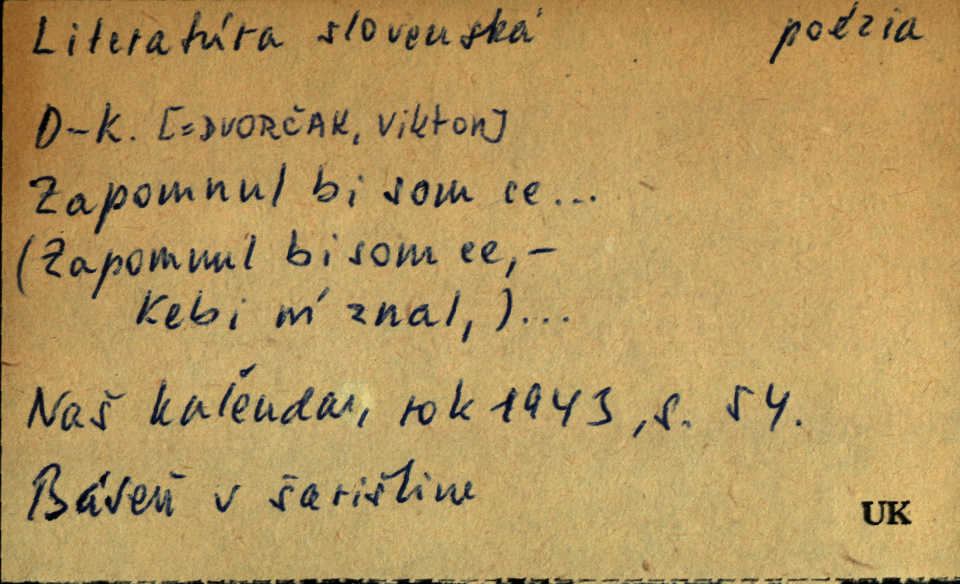 Literatúra slovenská poézia
D-K. [=DVORČAK, Viktor]
Zapomnul bi som ce...
(Zapomnul bi som ce,-
Kebi ňí znal,)...
Naš kalendar, rok 1943, s. 54.
Báseň v šarištine
UK